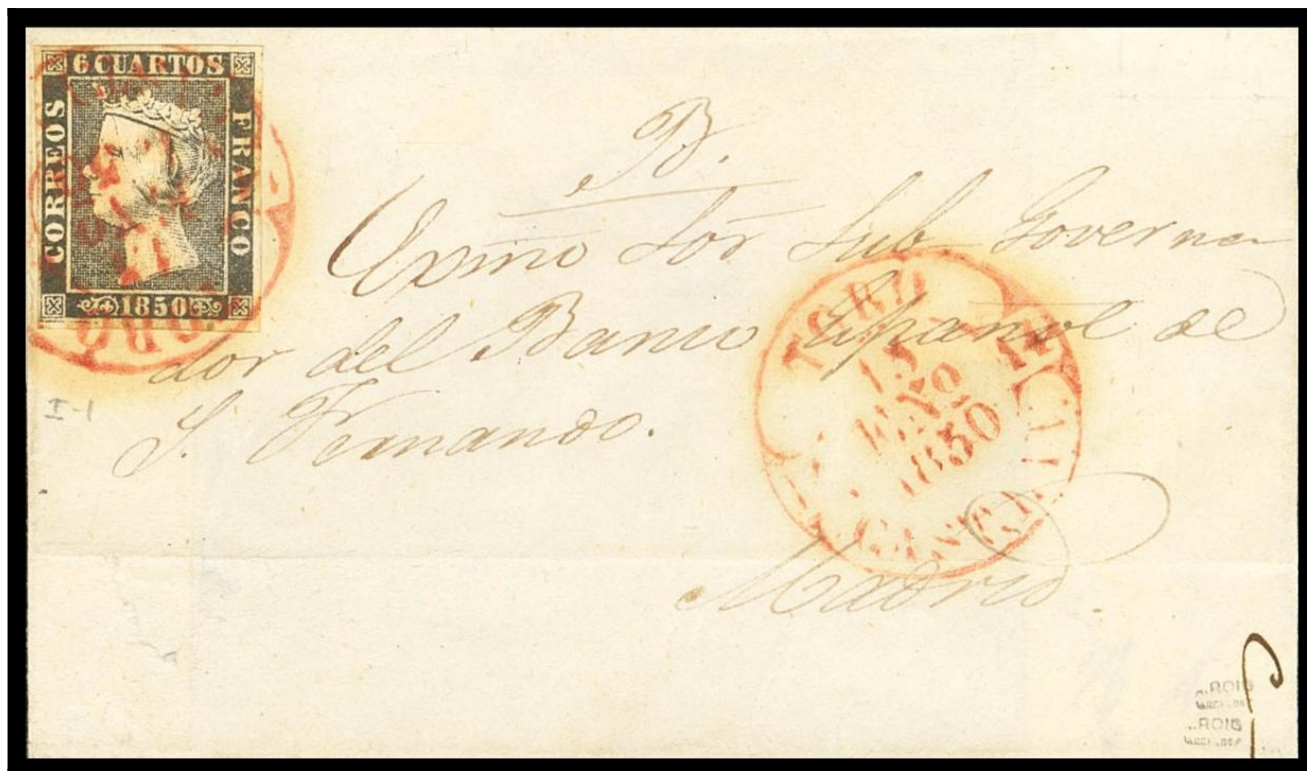 6 CUARTOS
CORREOS
FRANCO
1850
B.
Exmo Sor Sub Governa
dor del Banco Español de
S. Fernando.
I-1
TORO
15
ENO
1850
Madrid.
ROIG
ROIG